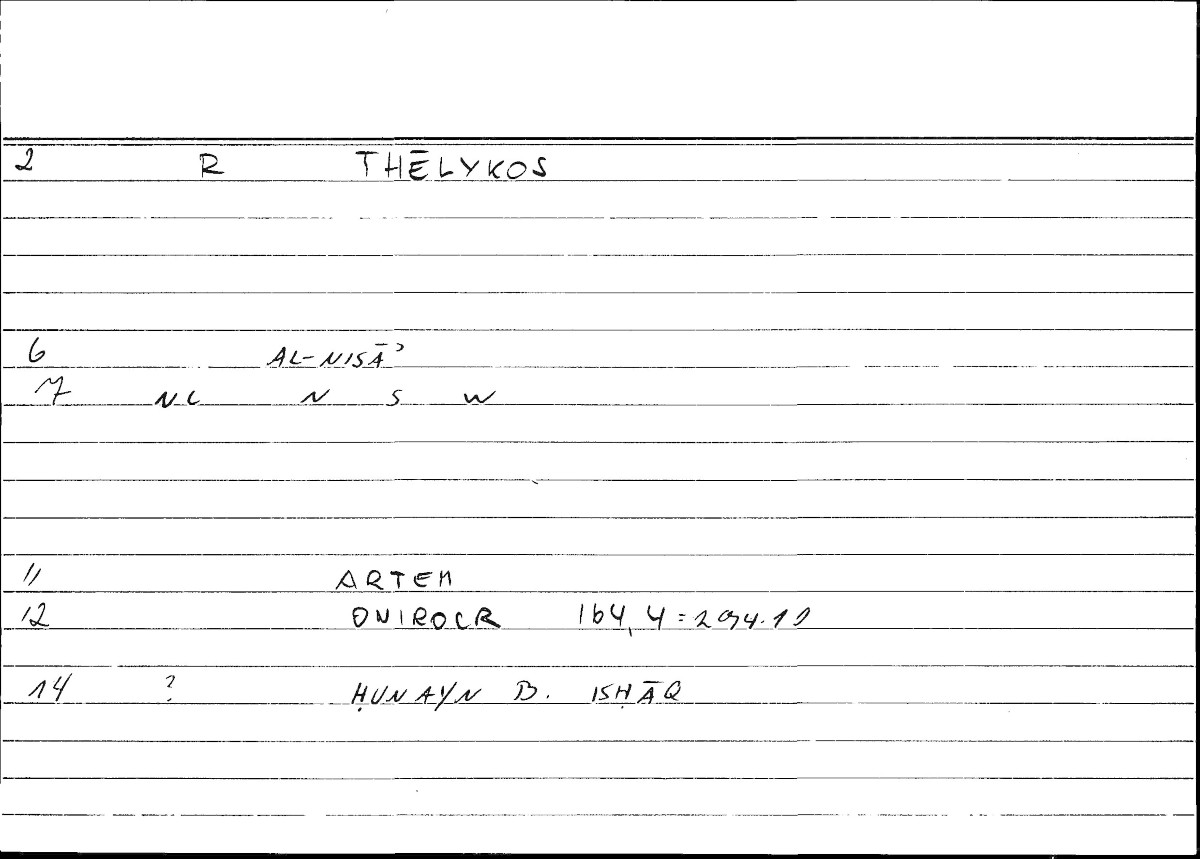 2 R THĒLYKOS
6 AL-NISĀʾ
7 NC N S W
11 ARTEM
12 ONIROCR 164,4 = 294.19
14 ? ḤUNAYN B. ISḤĀQ